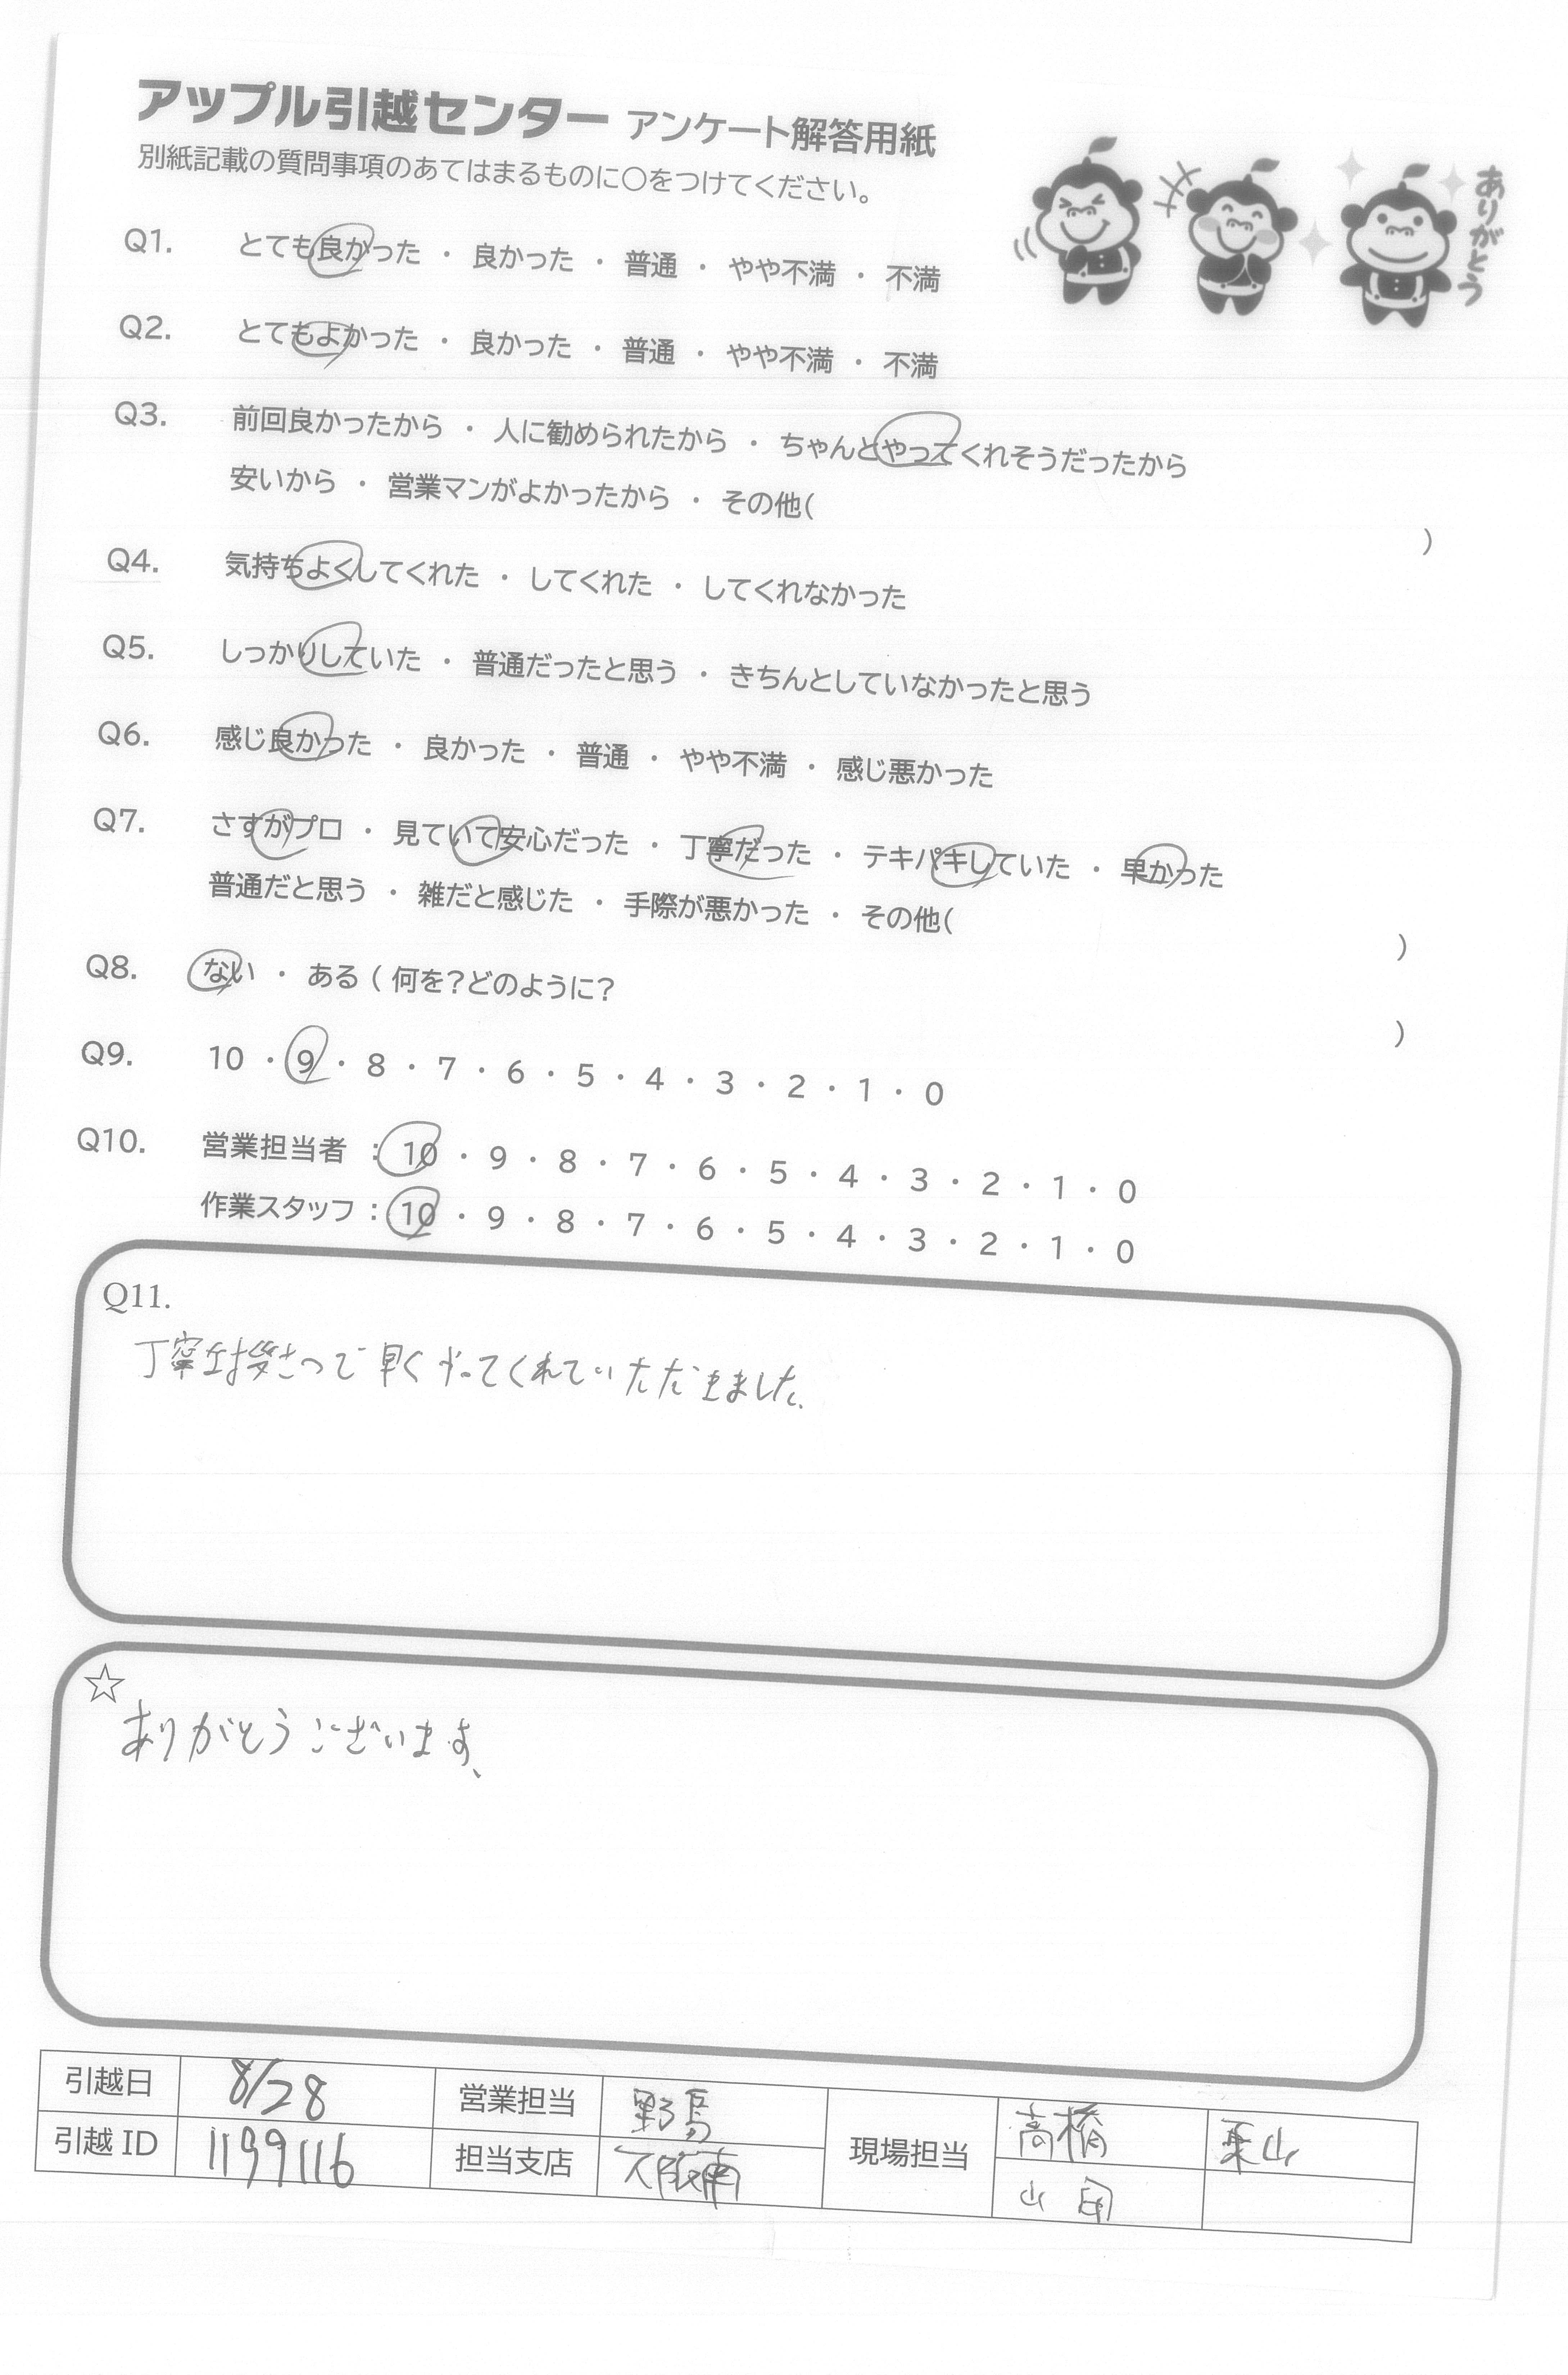 アップル引越センター アンケート解答用紙
別紙記載の質問事項のあてはまるものに〇をつけてください。
ありがとう
Q1. とても良かった ・ 良かった ・ 普通 ・ やや不満 ・ 不満
Q2. とてもよかった ・ 良かった ・ 普通 ・ やや不満 ・ 不満
Q3. 前回良かったから ・ 人に勧められたから ・ ちゃんとやってくれそうだったから
安いから ・ 営業マンがよかったから ・ その他( )
Q4. 気持ちよくしてくれた ・ してくれた ・ してくれなかった
Q5. しっかりしていた ・ 普通だったと思う ・ きちんとしていなかったと思う
Q6. 感じ良かった ・ 良かった ・ 普通 ・ やや不満 ・ 感じ悪かった
Q7. さすがプロ ・ 見ていて安心だった ・ 丁寧だった ・ テキパキしていた ・ 早かった
普通だと思う ・ 雑だと感じた ・ 手際が悪かった ・ その他( )
Q8. ない ・ ある ( 何を?どのように? )
Q9. 10 ・ 9 ・ 8 ・ 7 ・ 6 ・ 5 ・ 4 ・ 3 ・ 2 ・ 1 ・ 0
Q10. 営業担当者 : 10 ・ 9 ・ 8 ・ 7 ・ 6 ・ 5 ・ 4 ・ 3 ・ 2 ・ 1 ・ 0
作業スタッフ : 10 ・ 9 ・ 8 ・ 7 ・ 6 ・ 5 ・ 4 ・ 3 ・ 2 ・ 1 ・ 0
Q11.
丁寧 さつで早くやってくれていただきました。
☆
ありがとうございます、
引越日 8/28 営業担当 野島 現場担当 高橋 栗山
引越 ID 1199116 担当支店 大阪南 山